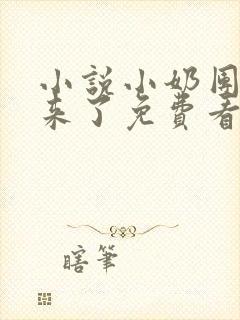 小說小奶團
來了免費看
瞎筆